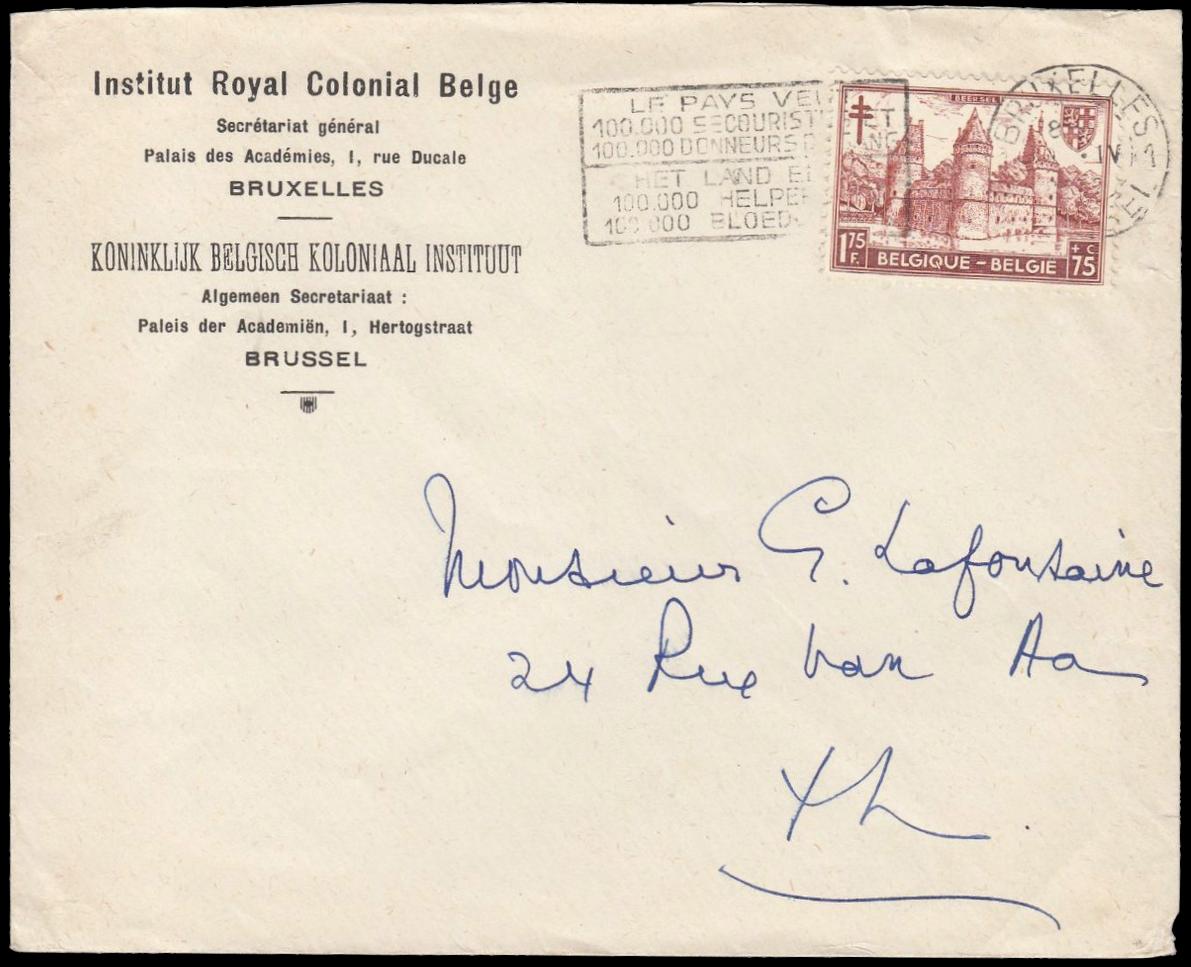 Institut Royal Colonial Belge
Secrétariat général
Palais des Académies, 1, rue Ducale
BRUXELLES
KONINKLIJK BELGISCH KOLONIAAL INSTITUUT
Algemeen Secretariaat :
Paleis der Academiën, 1, Hertogstraat
BRUSSEL
LE PAYS
100.000 SECOURIST
100.000 DONNEURS
HET LAND
100.000 HELPE
100.000 BLOED
BEERSEL
1F.75 BELGIQUE - BELGIE + C 75
BRUXELLES
Monsieur G. Lafontaine
24 Rue Van Aa
XL